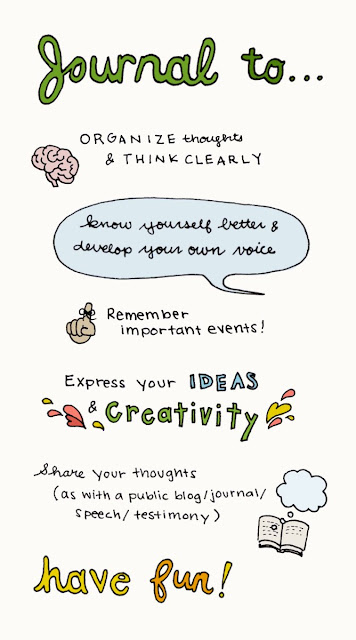 Journal to...
ORGANIZE thoughts
& THINK CLEARLY
know yourself better &
develop your own voice
Remember
important events!
Express your IDEAS
& Creativity
Share your thoughts
(as with a public blog/journal/
speech/testimony)
have fun!